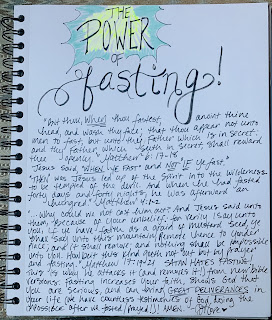 THE
POWER
OF
fasting!
"But thou, WHEN thou fastest, anoint thine
head, and wash thy face; that thou appear not unto
men to fast, but unto thy Father which is in secret:
and thy Father, which seeth in secret, shall reward
thee openly." Matthew 6:17-18
Jesus said, "WHEN YE FAST" and NOT "IF ye fast."
"Then was Jesus led up of the Spirit into the wilderness
to be tempted of the devil. And when he had fasted
forty days and forty nights, he was afterward an
hungred." Matthew 4:1-2
Why could we not cast him out? And Jesus said unto
them, Because of your unbelief: for verily I say unto
you, If ye have faith as a grain of mustard seed, ye
shall say unto this mountain, Remove hence to yonder
place; and it shall remove; and nothing shall be impossible
unto you. Howbeit this kind goeth not out but by prayer
and fasting." Matthew 17:19-21 SATAN HATES FASTING!
This is why he attacks it (and removes it!) from new Bible
versions. Fasting increases your faith, shows God that
you are serious, and can bring GREAT DELIVERANCES in
your life (we have countless testimonies of God doing the
"impossible" after we fasted/prayed!) AMEN.